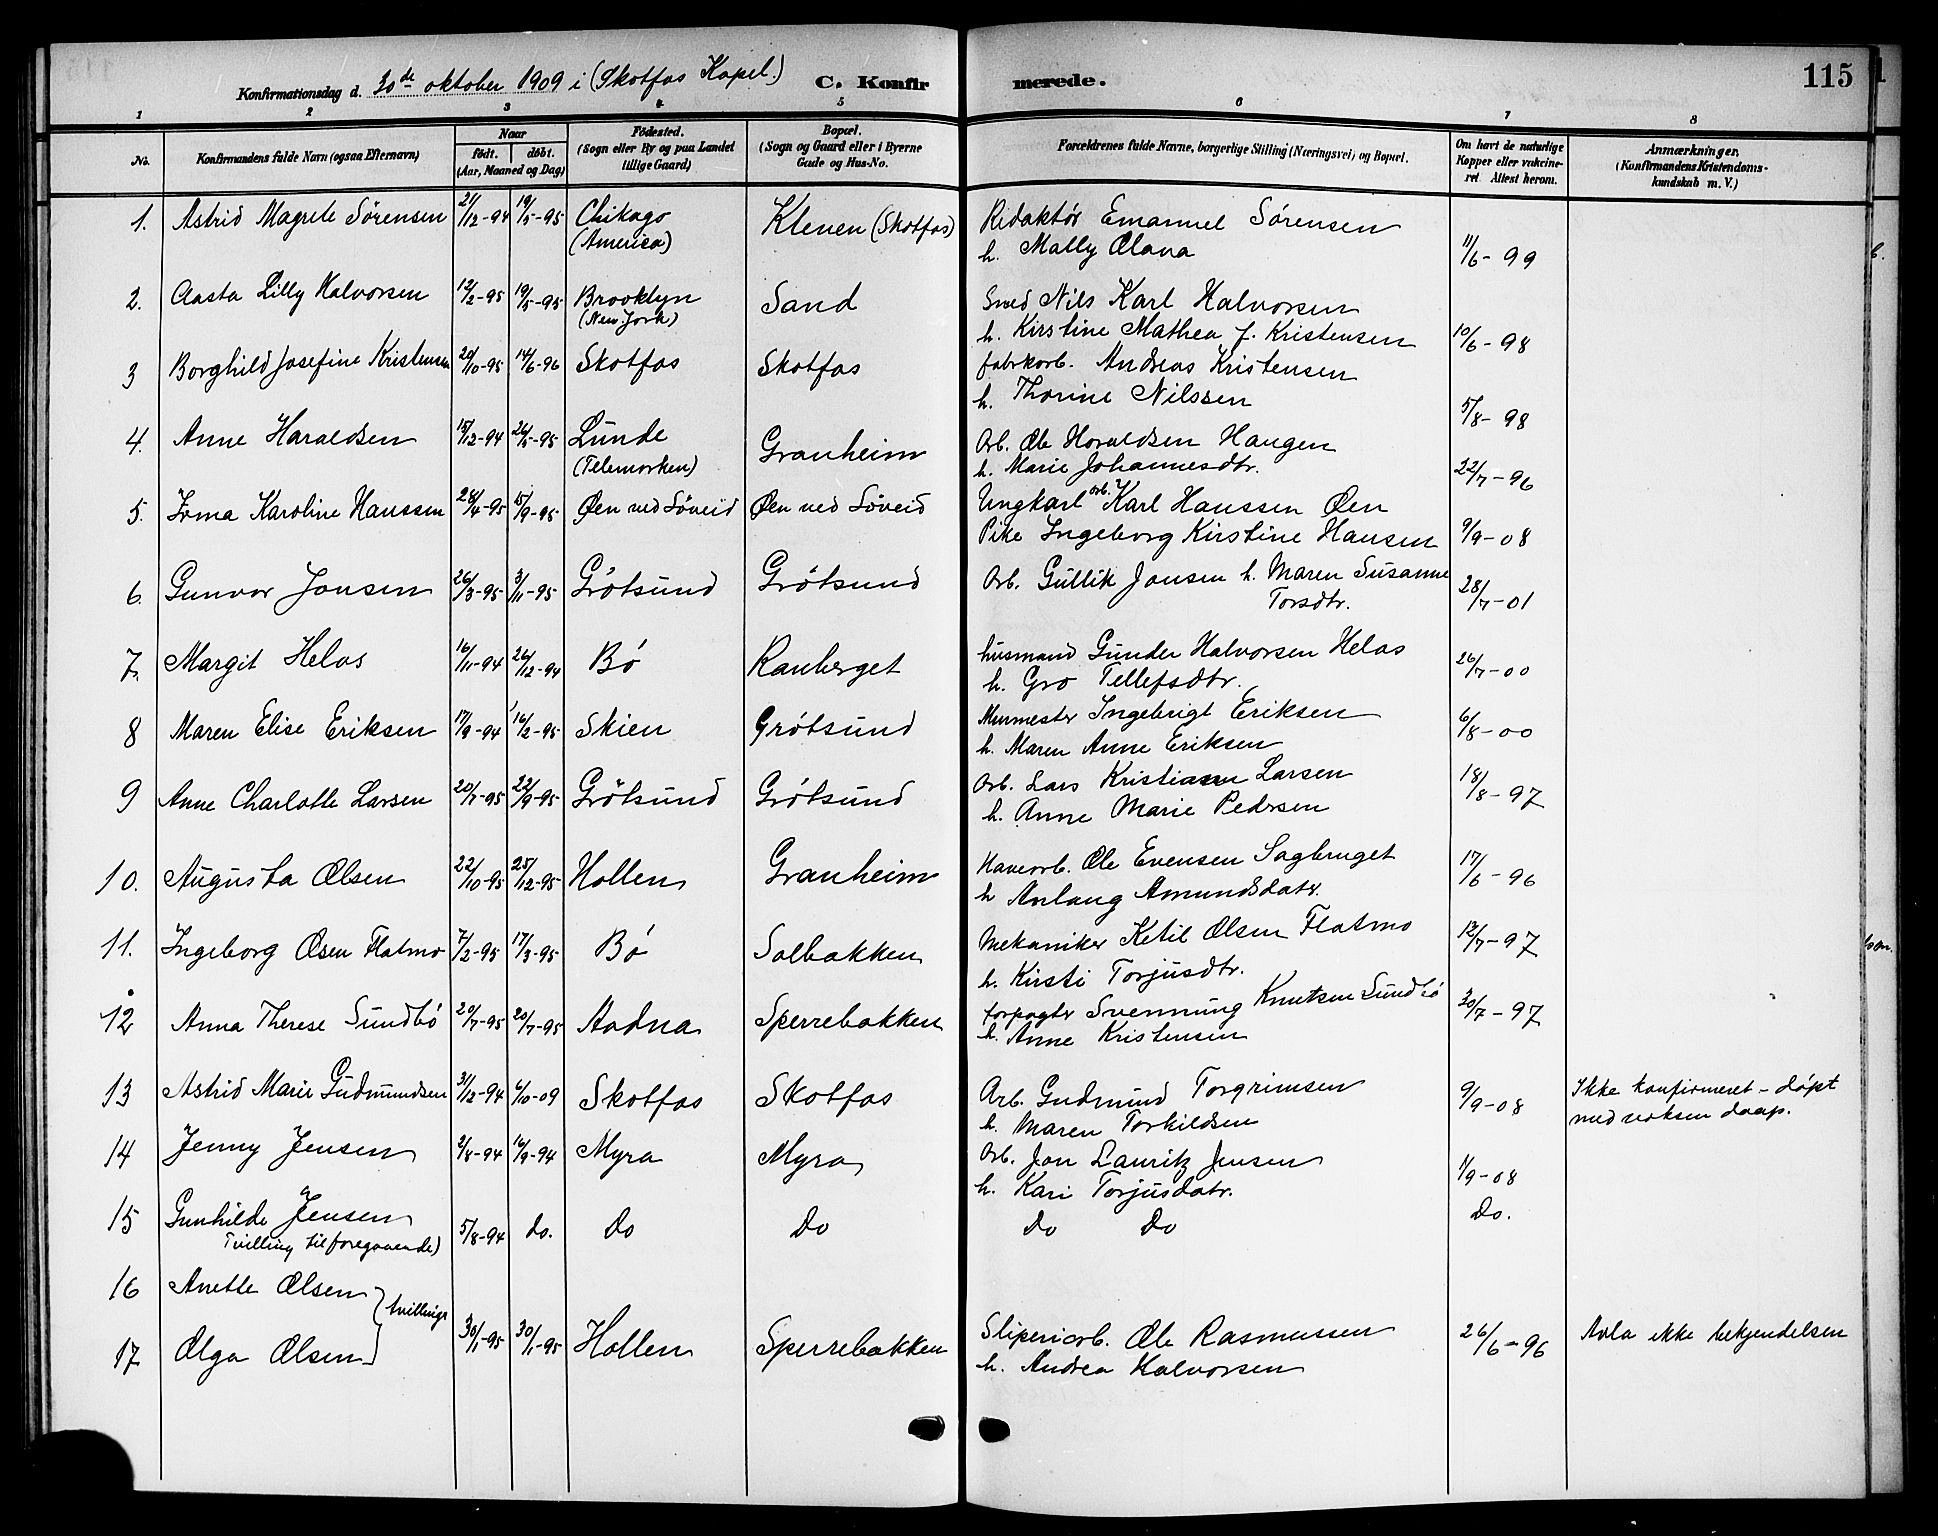 Konfirmationsdag d. 30de oktober 1909 i (Skotfos Kapel.) C. Konfirmerede. 115
1 2 3 4 5 6 7 8
No. Konfirmandens fulde Navn (ogsaa Efternavn) Naar født. døbt. (Aar, Maaned og Dag) Fødested. (Sogn eller By og paa Landet tillige Gaard) Bopæl. (Sogn og Gaard eller i Byerne Gade og Hus-No. Forældrenes fulde Navne, borgerlige Stilling (Næringsvei) og Bopæl. Om havt de naturlige Kopper eller vakcineret. Attest herom. Anmærkninger. (Konfirmandens Kristendomskundskab m. V.)
1. Astrid Magrete Sörensen 21/12-94 19/5-95 Chikago (America) Klenen (Skotfos) Redaktör Emanuel Sörensen
h. Mally Olava 11/6-99
2. Aasta Lilly Halvorsen 12/2-95 19/5-95 Brooklyn (New Jork) Sand Smed Nils Karl Halvorsen
h. Kirstine Mathea f. Kristensen 10/6-98
3 Borghild Josefine Kristensen 20/10-95 14/6-96 Skotfos Skotfos fabrkarb. Andreas Kristensen
h. Thorine Nilssen 5/8-98
4. Anne Haraldsen 15/12-94 26/5-95 Lunde (Telemarken) Granheim Arb. Ole Haraldsen Haugen
h. Marie Johannesdtr. 22/7-96
5. Irma Karoline Hanssen 28/4-95 15/9-95 Øen ved Löveid Øen ved Löveid Ungkarl arb. Karl Hanssen Øen
Pike Ingeborg Kirstine Hansen 9/9-08
6. Gunvor Jansen 26/3-95 3/11-95 Grötsund Grötsund Arb. Gullik Jansen h. Maren Susanne
Torsdtr. 28/7-01
7. Margit Helas 16/11-94 26/12-94 Bö Ranberget husmand Gunder Halvorsen Helas
h. Gro Tellefsdtr. 26/7-00
8 Maren Elise Eriksen 17/9-94 16/2-95 Skien Grötsund Murmester Ingebrigt Eriksen
h. Maren Anne Eriksen 6/8-00
9 Anne Charlotte Larsen 20/7-95 22/9-95 Grötsund Grötsund Arb. Lars Kristiansen Larsen
h. Anne Marie Pedersen 18/8-97
10. Augusta Olsen 22/10-95 25/12-95 Hollen Granheim Havearb. Ole Evensen Sagbruget
h Anlaug Amundsdatr. 17/6-96
11. Ingeborg Olsen Flatmo 7/2-95 17/3-95 Bö Solbakken Mekaniker Ketil Olsen Flatmo
h. Kirsti Torjusdtr. 12/7-97
12 Anna Therese Sundbö 20/7-95 20/7-95 Aadna Sperrebakken forpagter Svennung Knutsen Sundbö
h. Anne Kristensen 30/7-97
13 Astrid Marie Gudmundsen 31/12-94 6/10-09 Skotfos Skotfos Arb. Gudmund Torgrimsen
h. Maren Torkildsen 9/9-08 Ikke konfirmeret - døpt
med voksen daap.
14 Jenny Jensen 2/8-94 16/9-94 Myra Myra Arb. Jan Lauritz Jensen
h. Kari Torjusdatr. 1/9-08
15 Gunhilde Jensen 5/8-94 do. Do Do Do Do Do.
Tvilling til foregaaende)
16 Anette Olsen } tvillinge
17 Olga Olsen 30/1-95 30/1-95 Hollen Sperrebakken Sliperiarb. Ole Rasmussen
h. Andrea Halvorsen 26/6-96 Avla ikke bekjendelsen